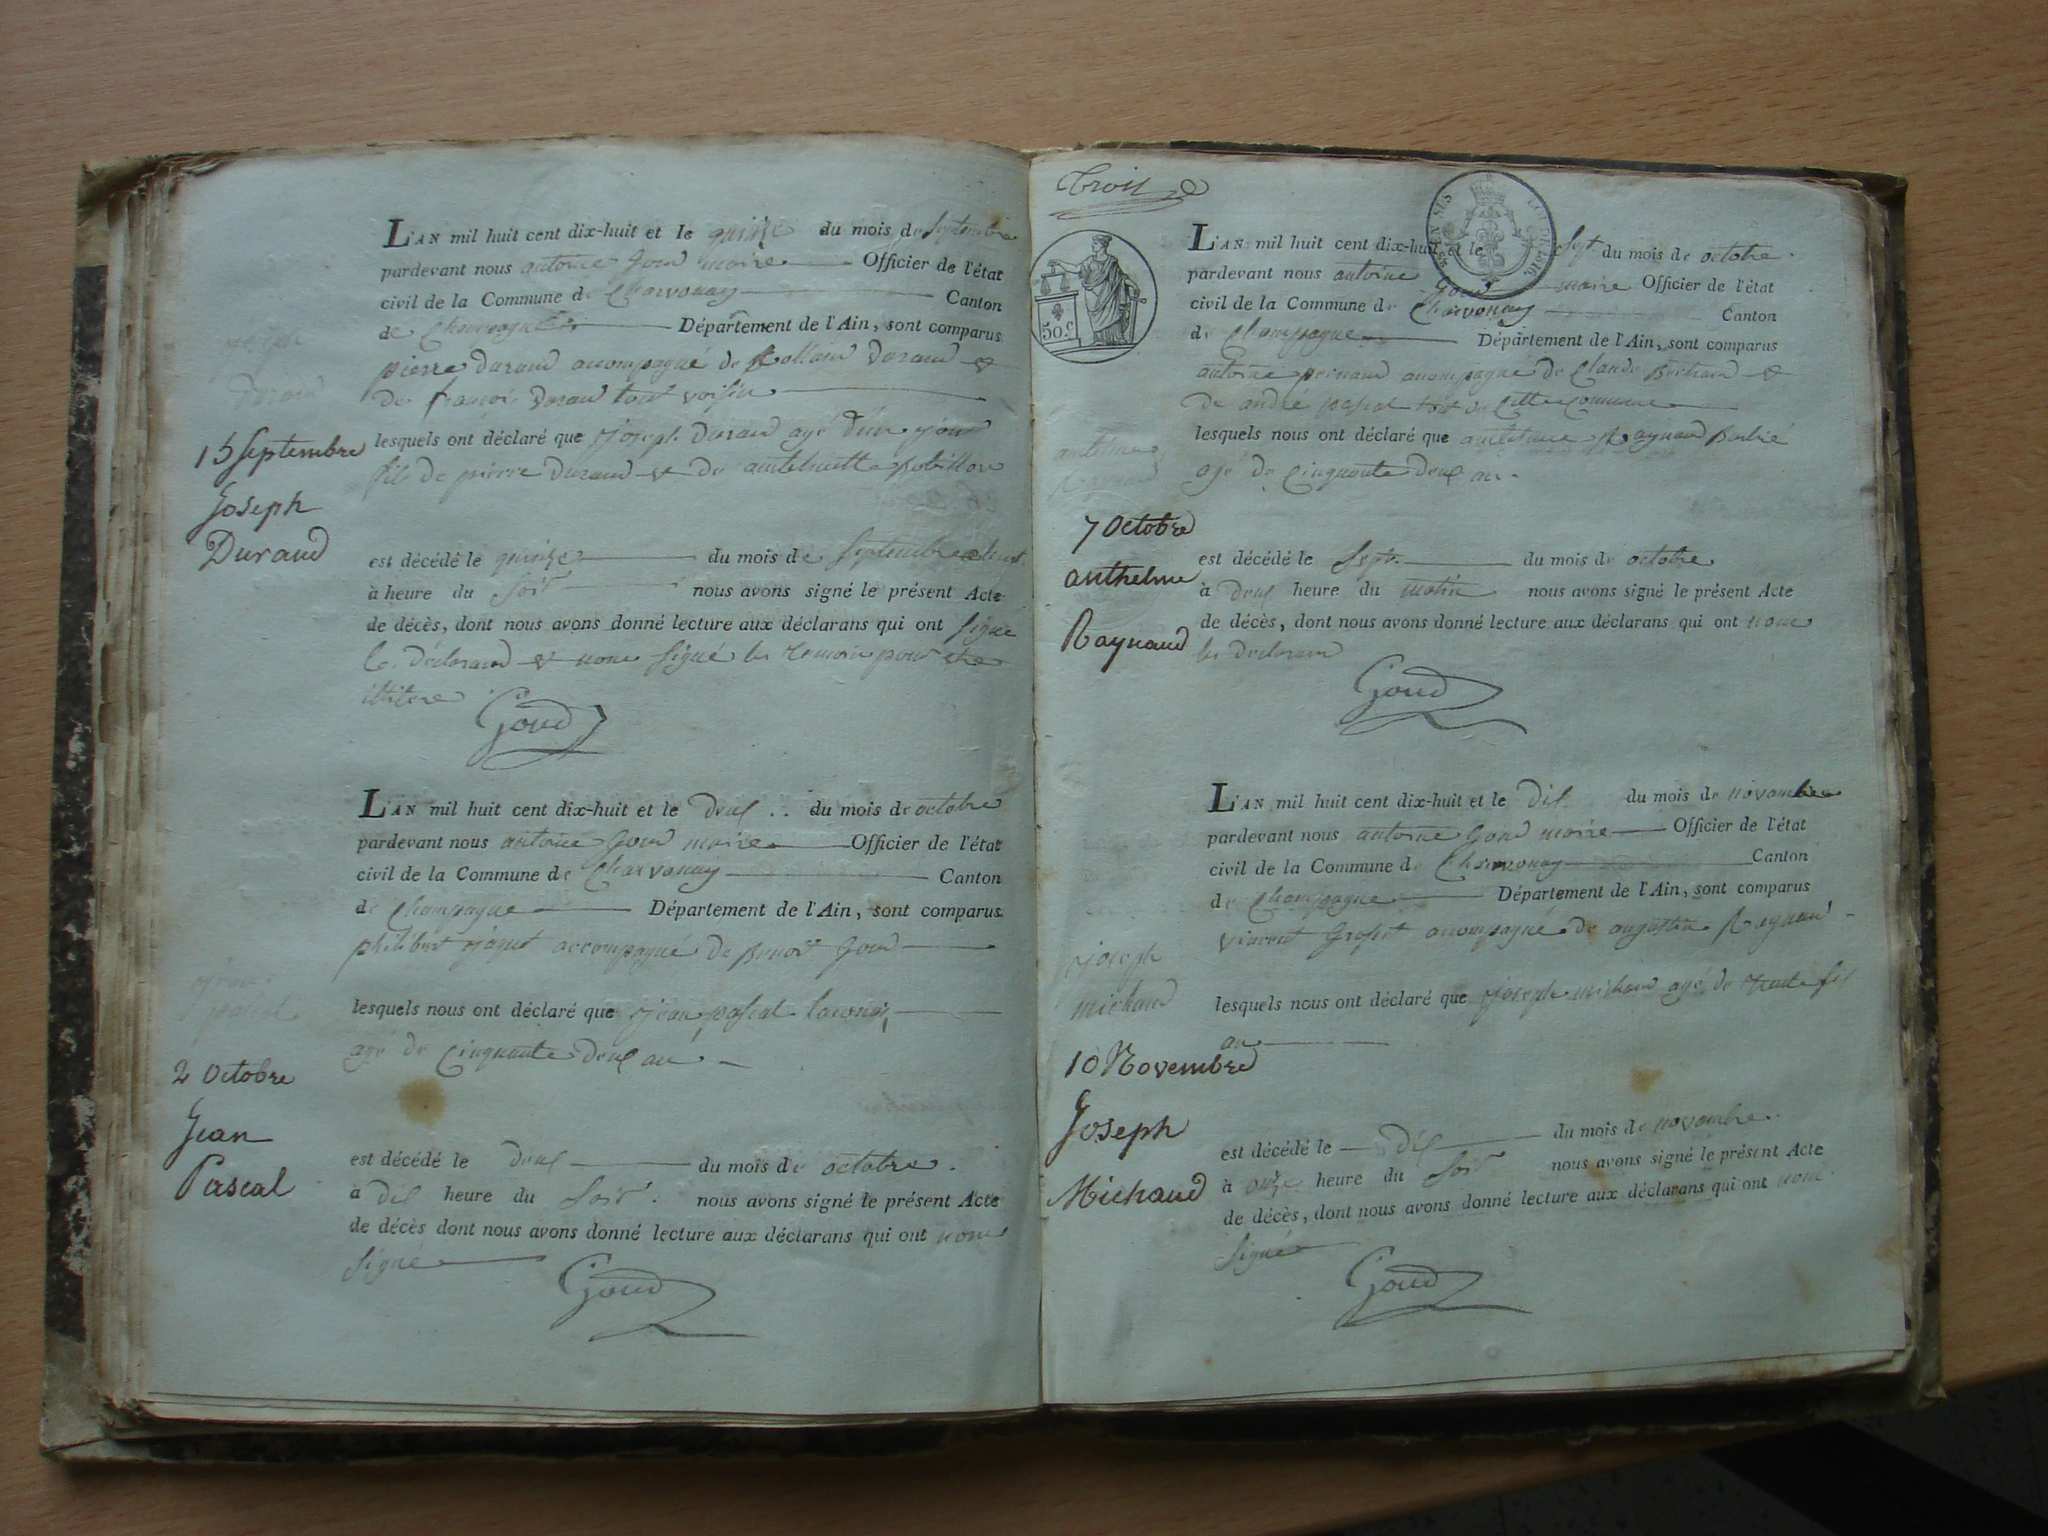 L'AN mil huit cent dix-huit et le quinze du mois de Septembre
pardevant nous antoine Goud maire Officier de l'état
civil de la Commune de Charvonay Canton
de Champagne Département de l'Ain, sont comparus
pierre durand accompagné de durand &
de françois durand tout voisin
lesquels ont déclaré que joseph durand agé d'un jour
fils de pierre durand & de
15 Septembre
Joseph
Durand
est décédé le quinze du mois de Septembre
à heure du Soir nous avons signé le présent Acte
de décès, dont nous avons donné lecture aux déclarans qui ont Signé
le déclarand & nom Signé les temoin pour etre
illitere
Goud
L'AN mil huit cent dix-huit et le deux du mois de octobre
pardevant nous antoine Goud maire Officier de l'état
civil de la Commune de Charvonay Canton
de Champagne Département de l'Ain, sont comparus
philibert jaquet accompagné de Benoit Goud
lesquels nous ont déclaré que jean pascal
agé de cinquante deux an
2 Octobre
Jean
Pascal
est décédé le deux du mois de octobre.
à dix heure du Soir. nous avons signé le présent Acte
de décès dont nous avons donné lecture aux déclarans qui ont nom
Signé
Goud
trois
50 c
L'AN mil huit cent dix-huit et le Sept du mois de octobre.
pardevant nous antoine Goud maire Officier de l'état
civil de la Commune de Charvonay Canton
de Champagne Département de l'Ain, sont comparus
antoine accompagné de Claude &
de andré pascal tout de cette commune
lesquels nous ont déclaré que antelme Raynaud
agé de cinquante deux an
7 Octobre
anthelme
Raynaud
est décédé le Sept du mois de octobre
à deux heure du matin nous avons signé le présent Acte
de décès, dont nous avons donné lecture aux déclarans qui ont nom
les declaran
Goud
L'AN mil huit cent dix-huit et le dix du mois de novembre
pardevant nous antoine Goud maire Officier de l'état
civil de la Commune de Charvonay Canton
de Champagne Département de l'Ain, sont comparus
vincent accompagné de augustin Raynaud
joseph
michaud
lesquels nous ont déclaré que joseph michaud agé de trente six
an
10 Novembre
Joseph
Michaud
est décédé le dix du mois de novembre.
à onze heure du Soir nous avons signé le présent Acte
de décès, dont nous avons donné lecture aux déclarans qui ont nom
Signé
Goud